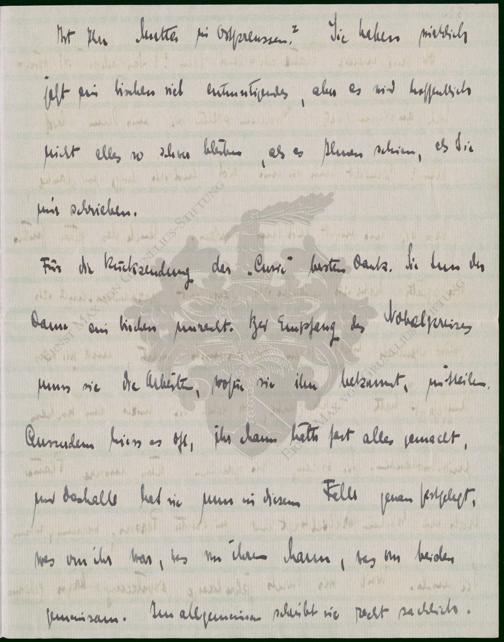 Ist Ihre Mutter in Ostpreussen? Sie haben wirklich
jetzt ein bischen viel entmutigendes, aber es wird hoffentlich
nicht alles so schwer bleiben, als es Ihnen schien, als Sie
mir schrieben.
Für die Rücksendung der „Curie" besten Dank. Sie tun der
Dame ein bischen unrecht. Bei Empfang des Nobelpreises
muss sie die Arbeiten, wofür sie ihn bekommt, mitteilen.
Ausserdem hiess es oft, ihr Mann hätte fast alles gemacht,
und deshalb hat sie nun in diesem Falle genau festgelegt,
was von ihr war, was von ihrem Mann, was von beiden
gemeinsam. Im allgemeinen schreibt sie recht sachlich.